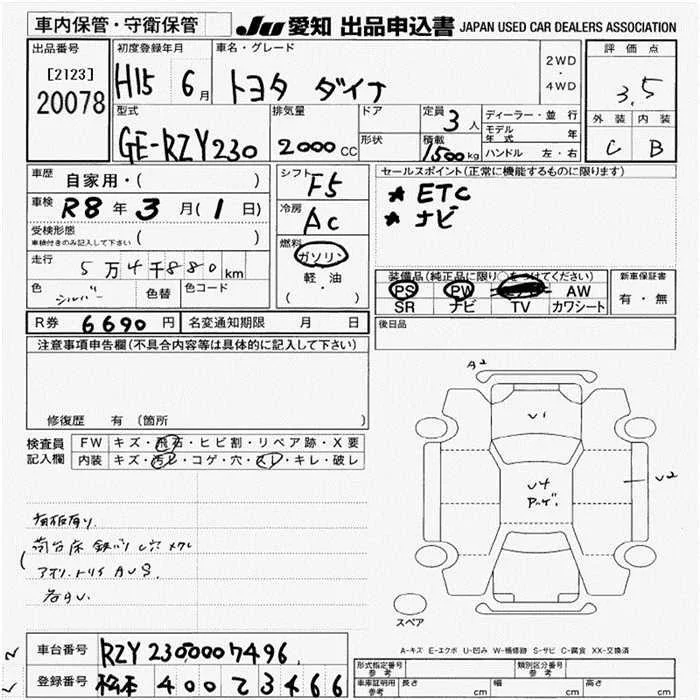 車内保管・守衛保管
JU 愛知 出品申込書 JAPAN USED CAR DEALERS ASSOCIATION
出品番号
[2123]
20078
初度登録年月
H15 6月
車名・グレード
トヨタ ダイナ
2WD
・
4WD
評価点
3.5
外装 内装
C B
型式
GE-RZY230
排気量
2000cc
ドア
形状
定員
3人
積載
1500kg
ディーラー・並行
モデル年式 年
ハンドル 左・右
車歴
自家用・( )
車検
R8年3月(1日)
受検形態
車検付きのみ記入して下さい ( )
走行
5万4千880km
色
シルバー
色替
色コード
シフト
F5
冷房
AC
燃料
ガソリン
・
軽・油
( ・ )
セールスポイント(正常に機能するものに限ります)
★ ETC
★ ナビ
装備品(純正品に限り○をつけてください)
PS PW AW
SR ナビ TV カワシート
新車保証書
有・無
R券 6690円
名変通知期限 月 日
後日品
注意事項申告欄(不具合内容等は具体的に記入して下さい)
修復歴 有 (箇所 )
検査員記入欄
FW キズ・飛石・ヒビ割・リペア跡・X要
内装 キズ・汚レ・コゲ・穴・スレ・キレ・破レ
荷台床 鉄バリ 穴
アオリ.トリイ AUS.
A2
U1
U4
U2
スペア
A-キズ E-エクボ U-凹み W-補修跡 S-サビ C-腐食 XX-交換済
車台番号 RZY2300007496
登録番号 松本 400 て 3466
形式指定番号
参考
類別区分番号
参考
車庫証明用
参考
長さ cm
幅 cm
高さ cm